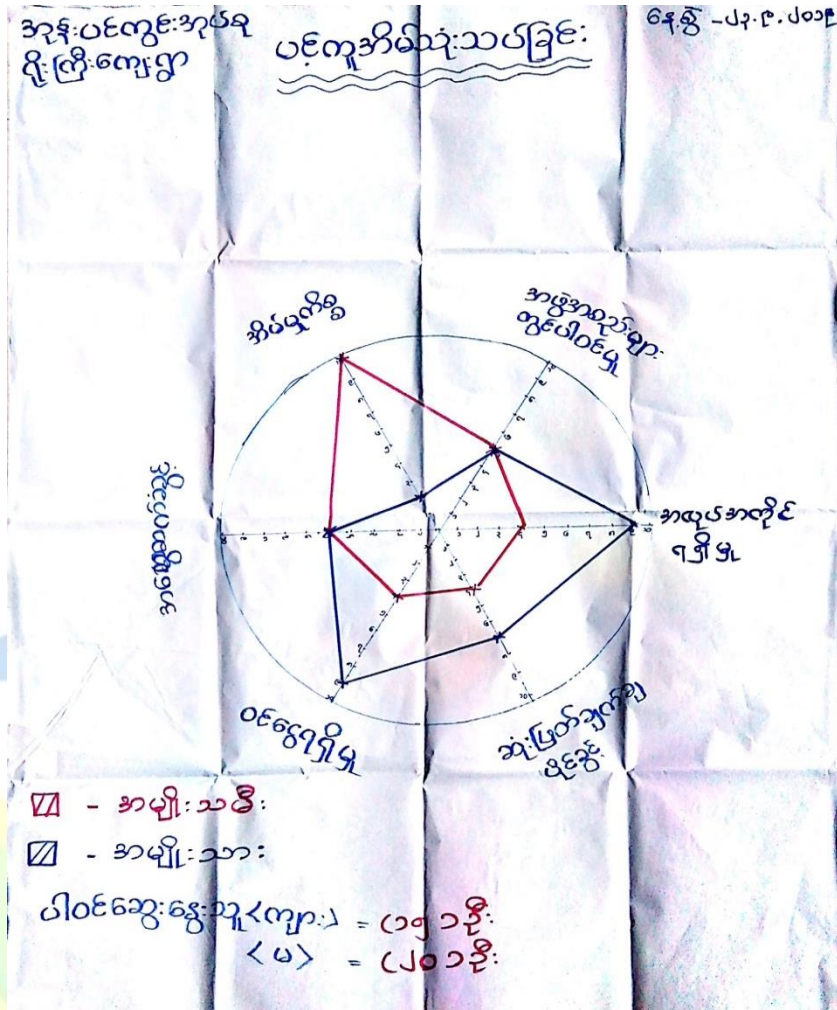 အုန်းပင်ကွင်းအုပ်စု
ရိုးကြီးကျေးရွာ
ပင့်ကူအိမ်သုံးသပ်ခြင်း
နေ့စွဲ -၂၃.၉.၂၀၁၉
အိမ်မှုကိစ္စ
အဖွဲ့အစည်းများ
တွင်ပါဝင်မှု
အလုပ်အကိုင်
ရရှိမှု
ဆုံးဖြတ်ချက်ချ
ပိုင်ခွင့်
ဝင်ငွေရရှိမှု
- အမျိုးသမီး
- အမျိုးသား
ပါဝင်ဆွေးနွေးသူ <ကျား> = (၁၅) ဦး
<မ> = (၂၀) ဦး